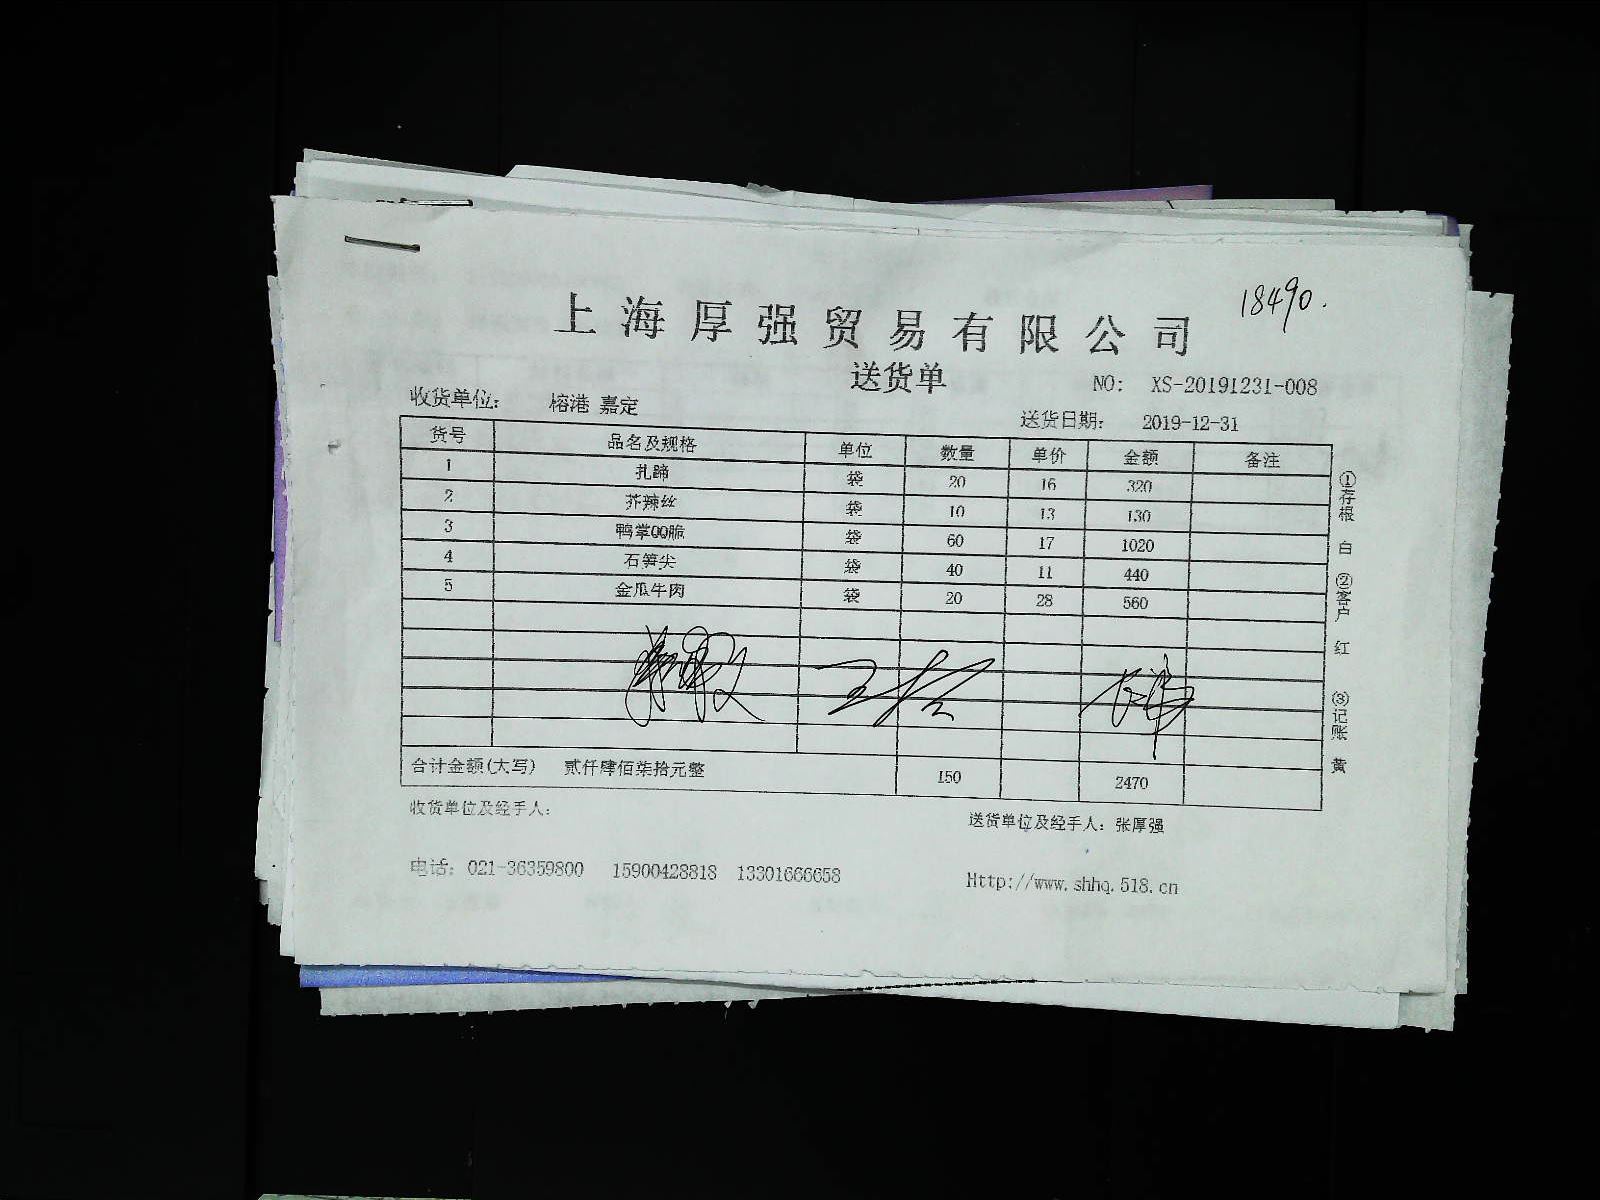 18490.
上海厚强贸易有限公司
送货单
NO: XS-20191231-008
收货单位: 榕港 嘉定
送货日期: 2019-12-31
货号 品名及规格 单位 数量 单价 金额 备注
1 扎蹄 袋 20 16 320
2 芥辣丝 袋 10 13 130
3 鸭掌QQ脆 袋 60 17 1020
4 石笋尖 袋 40 11 440
5 金瓜牛肉 袋 20 28 560
合计金额(大写) 贰仟肆佰柒拾元整 150 2470
收货单位及经手人:
送货单位及经手人: 张厚强
电话: 021-36359800 15900428818 13301666658
Http://www.shhq.518.cn
①存根 白 ②客户 红 ③记账 黄